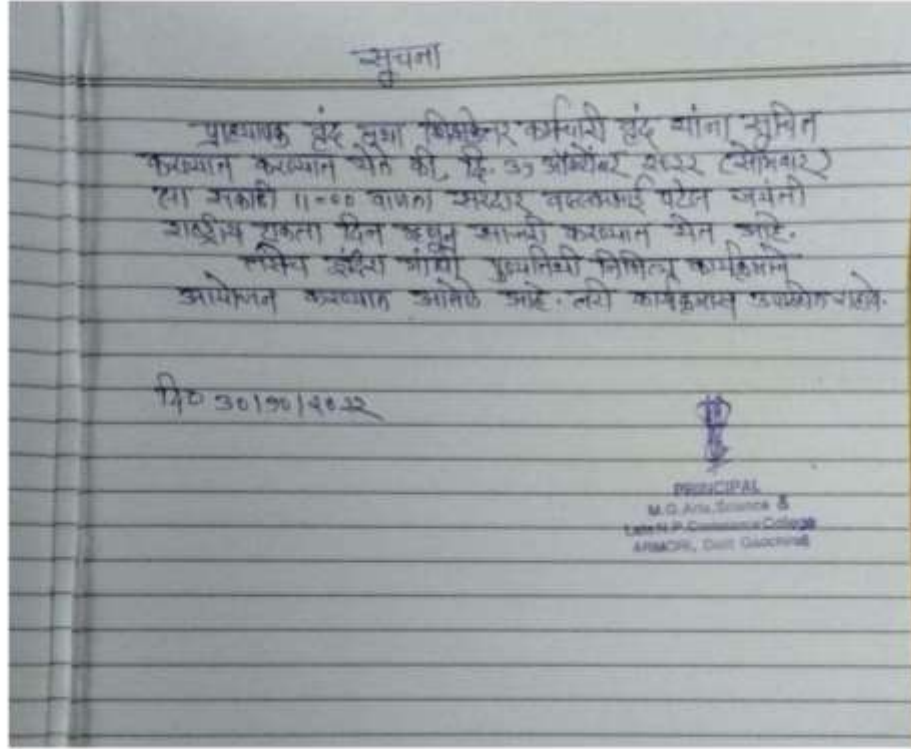 सूचना
प्राध्यापक वृंद तथा शिक्षकेत्तर कर्मचारी वृंद यांना सूचित
करण्यात करण्यात येत की, दि. ३१ ऑक्टोंबर २०२२ (सोमवार)
ला सकाळी 11-00 वाजता सरदार वल्लभभाई पटेल जयंती
राष्ट्रीय एकता दिन म्हणून साजरी करण्यात येत आहे.
तसेच इंदिरा गांधी पुण्यतिथी निमित्य कार्यक्रमाचे
आयोजन करण्यात आलेले आहे. तरी कार्यक्रमास उपस्थित राहावे.
दि० 30/१०/२०२२
PRINCIPAL
M.G. Arts, Science &
Late N.P. Commerce College
ARMORI, Distt Gadchiroli